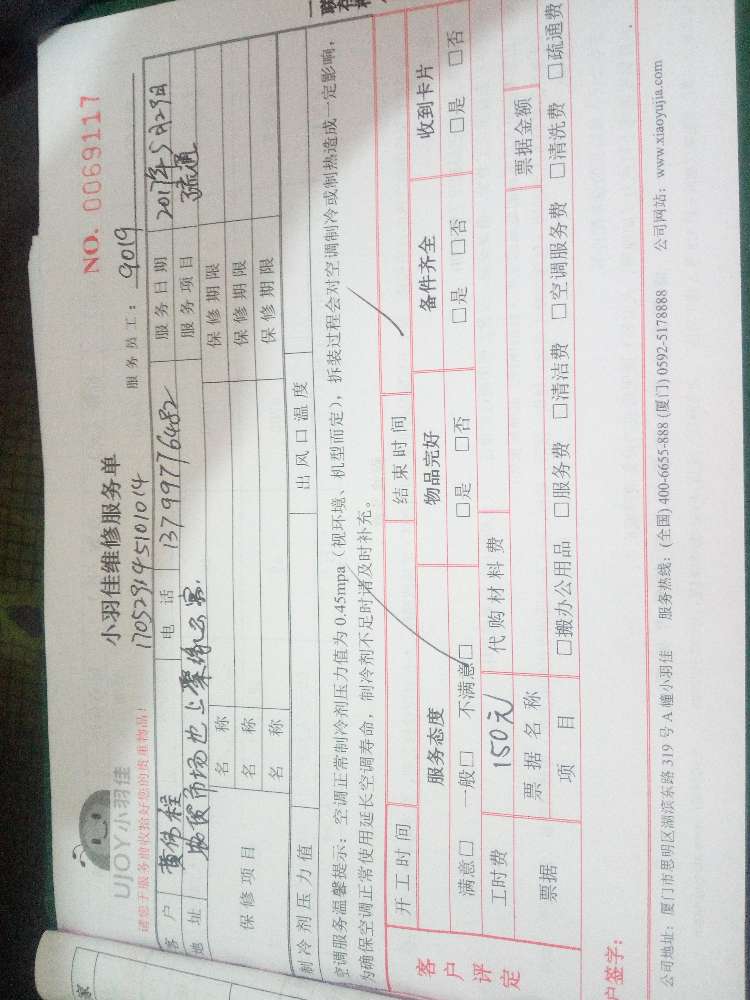 NO. 0069117
UJOY小羽佳
小羽佳维修服务单
请您于服务前收拾好您的贵重物品!
170529145101014
服务员工: 9019
客户 黄伟程 电话 13799776482 服务日期 2017年5月29日
地址 服务项目 疏通
保修项目 名称 保修期限
名称 保修期限
名称 保修期限
制冷剂压力值 出风口温度
空调服务温馨提示:空调正常制冷剂压力值为0.45mpa(视环境、机型而定),拆装过程会对空调制冷或制热造成一定影响,
为确保空调正常使用延长空调寿命,制冷剂不足时请及时补充。
开工时间 结束时间
客户评定 服务态度 物品完好 备件齐全 收到卡片
满意□ 一般□ 不满意□ □是 □否 □是 □否 □是 □否
工时费 150元 代购材料费
票据 票据名称 票据金额
项目 □搬办公用品 □服务费 □清洁费 □空调服务费 □清洗费 □疏通费
户签字:
公司地址:厦门市思明区湖滨东路319号A幢小羽佳 服务热线:(全国)400-6655-888 (厦门)0592-5178888 公司网站:www.xiaoyujia.com
家
联